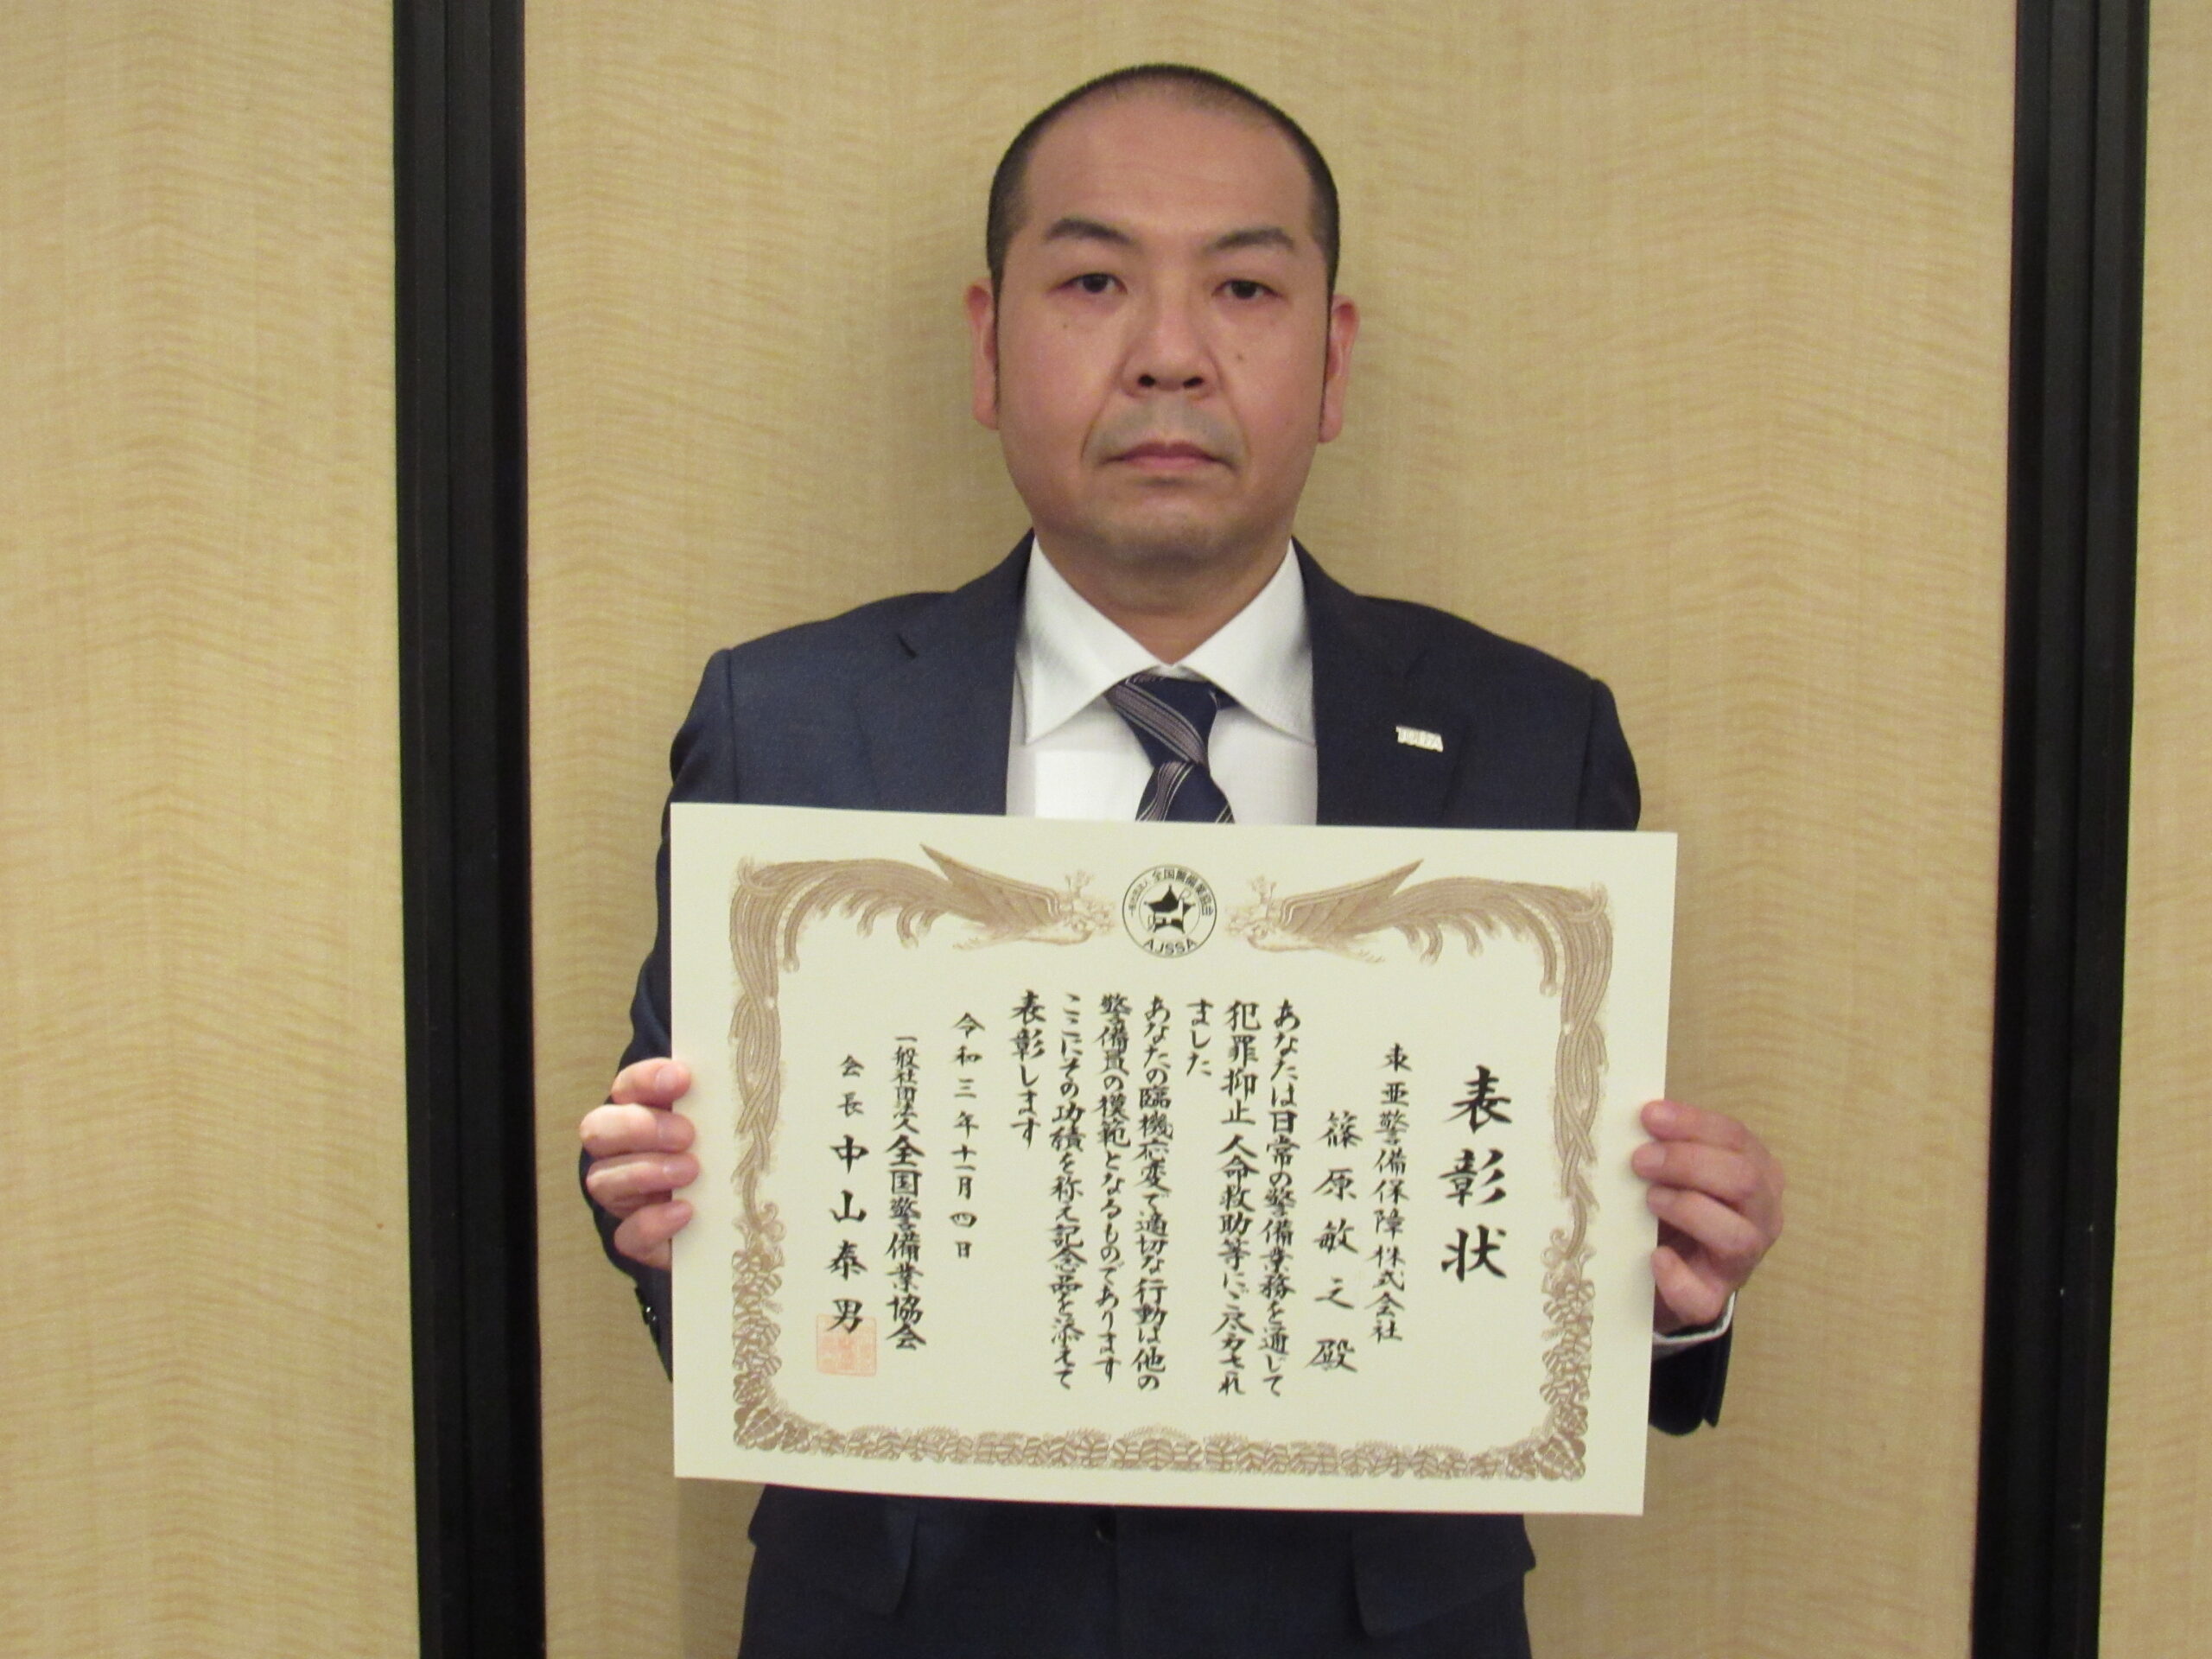 一般社団法人 全国警備業協会
AJSSA
TOWA
表彰状
東亜警備保障株式会社
篠原敏之殿
あなたは日常の警備業務を通じて
犯罪抑止人命救助等にご尽力され
ました
あなたの臨機応変で適切な行動は他の
警備員の模範となるものであります
ここにその功績を称え記念品を添えて
表彰します
令和三年十一月四日
一般社団法人全国警備業協会
会長 中山泰男